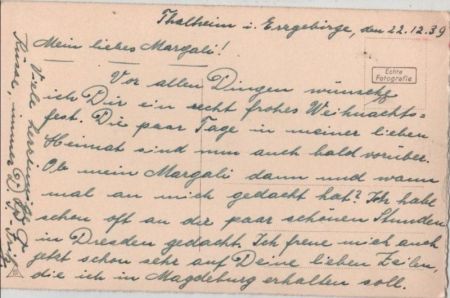 Thalheim i. Erzgebirge, den 22.12.39
Mein liebes Margali!
Echte
Fotografie
Vor allen Dingen wünsche
ich Dir ein recht frohes Weihnachts=
fest. Die paar Tage in meiner lieben
Heimat sind nun auch bald vorüber.
Ob mein Margali dann und wann
mal an mich gedacht hat? Ich habe
schon oft an die paar schönen Stunden
in Dresden gedacht. Ich freue mich auch
jetzt schon sehr auf Deine lieben Zeilen,
die ich in Magdeburg erhalten soll.
Viele herzinnige
Küsse, immer D.
Fritz